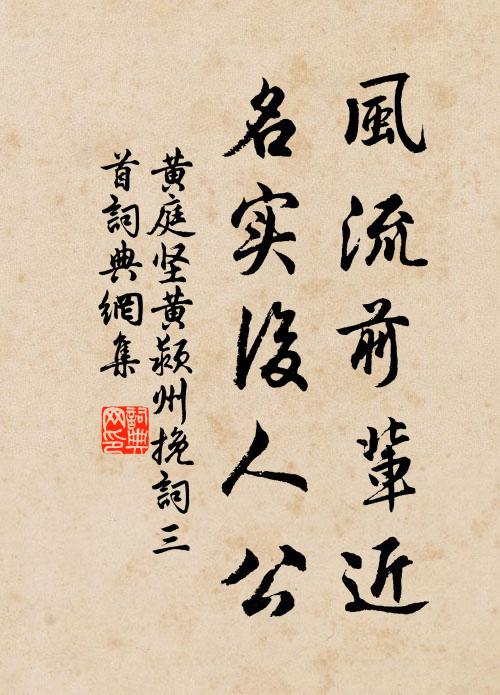 風流前輩近
名实後人公
黄庭坚黄颍州挽詞三
首詞典網集
詞典
网印